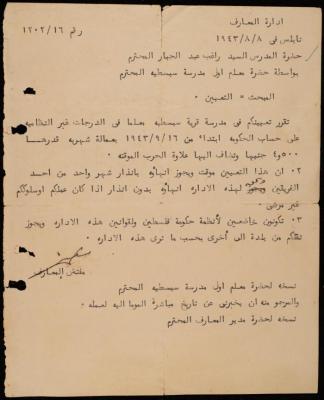 ادارة المعارف
نابلس في ١٩٤٣/٨/٨
رقم ١٢٠٢/١٦
حضرة المدرس السيد راغب عبد الجبار المحترم
بواسطة حضرة معلم اول مدرسة سبسطيه المحترم
المبحث = التعيين
تقرر تعيينكم في مدرسة قرية سبسطيه معلما في الدرجات غير النظاميه
على حساب الحكومه ابتداء من ١٩٤٣/٩/١٦ بعمالة شهريه قدرهـــا
٤٥٠٠ جنيها وتضاف اليها علاوة الحرب الموقته
٢٠ ان هذا التعيين موقت ويجوز انهاؤه بانذار شهر واحد من احـــد
الفريقين ويجوز لهذه الاداره انهاؤه بدون انذار اذا كان عملكم اوسلوككم
غير مرضي
٣٠ تكونون خاضعين لأنظمة حكومة فلسطين ولقوانين هذه الاداره ويجوز
نقلكم من بلدة الى أخرى بحسب ما ترى هذه الاداره
مفتش المعارف
نسخه لحضرة معلم اول مدرسة سبسطيه المحترم
والمرجو منه ان يخبرني عن تاريخ مباشرة الموما اليه لعمله
نسخه لحضرة مدير المعارف المحترم